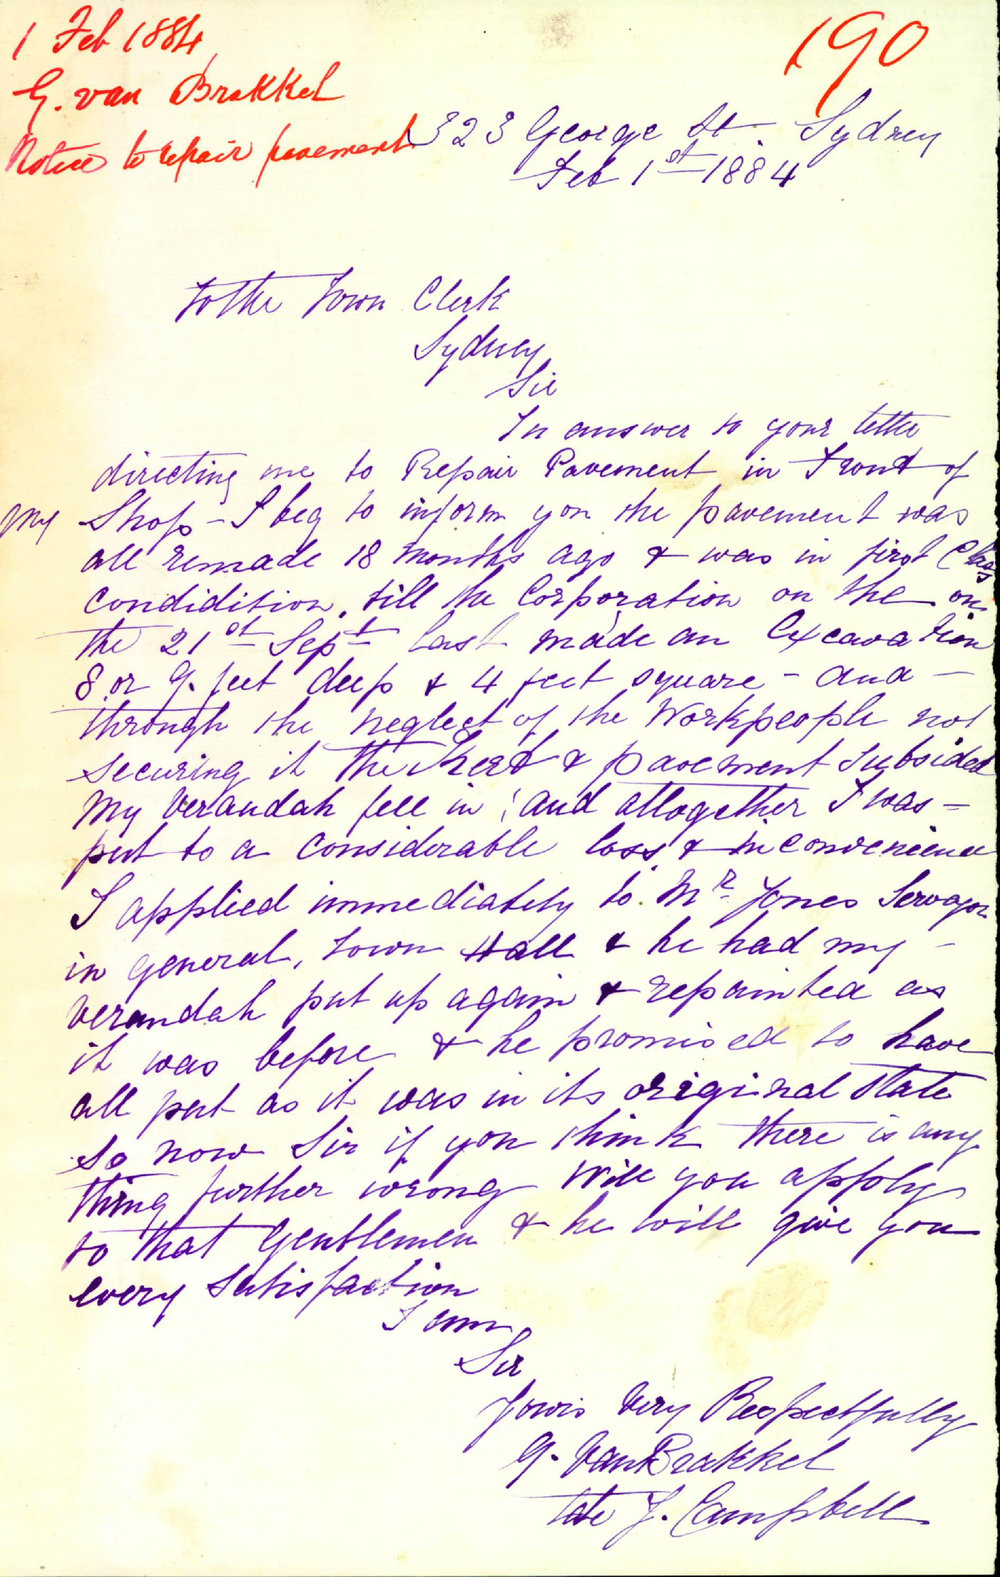 1 Feb 1884
190
G. van Brakkel
Notice to repair pavement
323 George St. Sydney
Feb 1st 1884
To the Town Clerk
Sydney
Sir
In answer to your letter
directing me to Repair Pavement in Front of
My Shop - I beg to inform you the pavement was
all remade 18 months ago & was in first Class
condidition, till the Corporation on the on
the 21st Sept last made an Excavation
8 or 9 feet deep & 4 feet square - and -
through the neglect of the Workpeople not
securing it the & pavement subsided
My Verandah fell in ; and altogether I was -
put to a considerable loss & inconvenience
I applied immediately to Mr Jones Servayor
in general, Town Hall & he had my -
verandah put up again & repainted as
it was before & he promised to have
all put as it was in its original state
so now Sir if you think there is any
thing further wrong Will you apply
to that Gentlemen & he will give you
every satisfaction
I am
Sir
Yours Very Respectfully
G. Van Brakkel
late J. Campbell